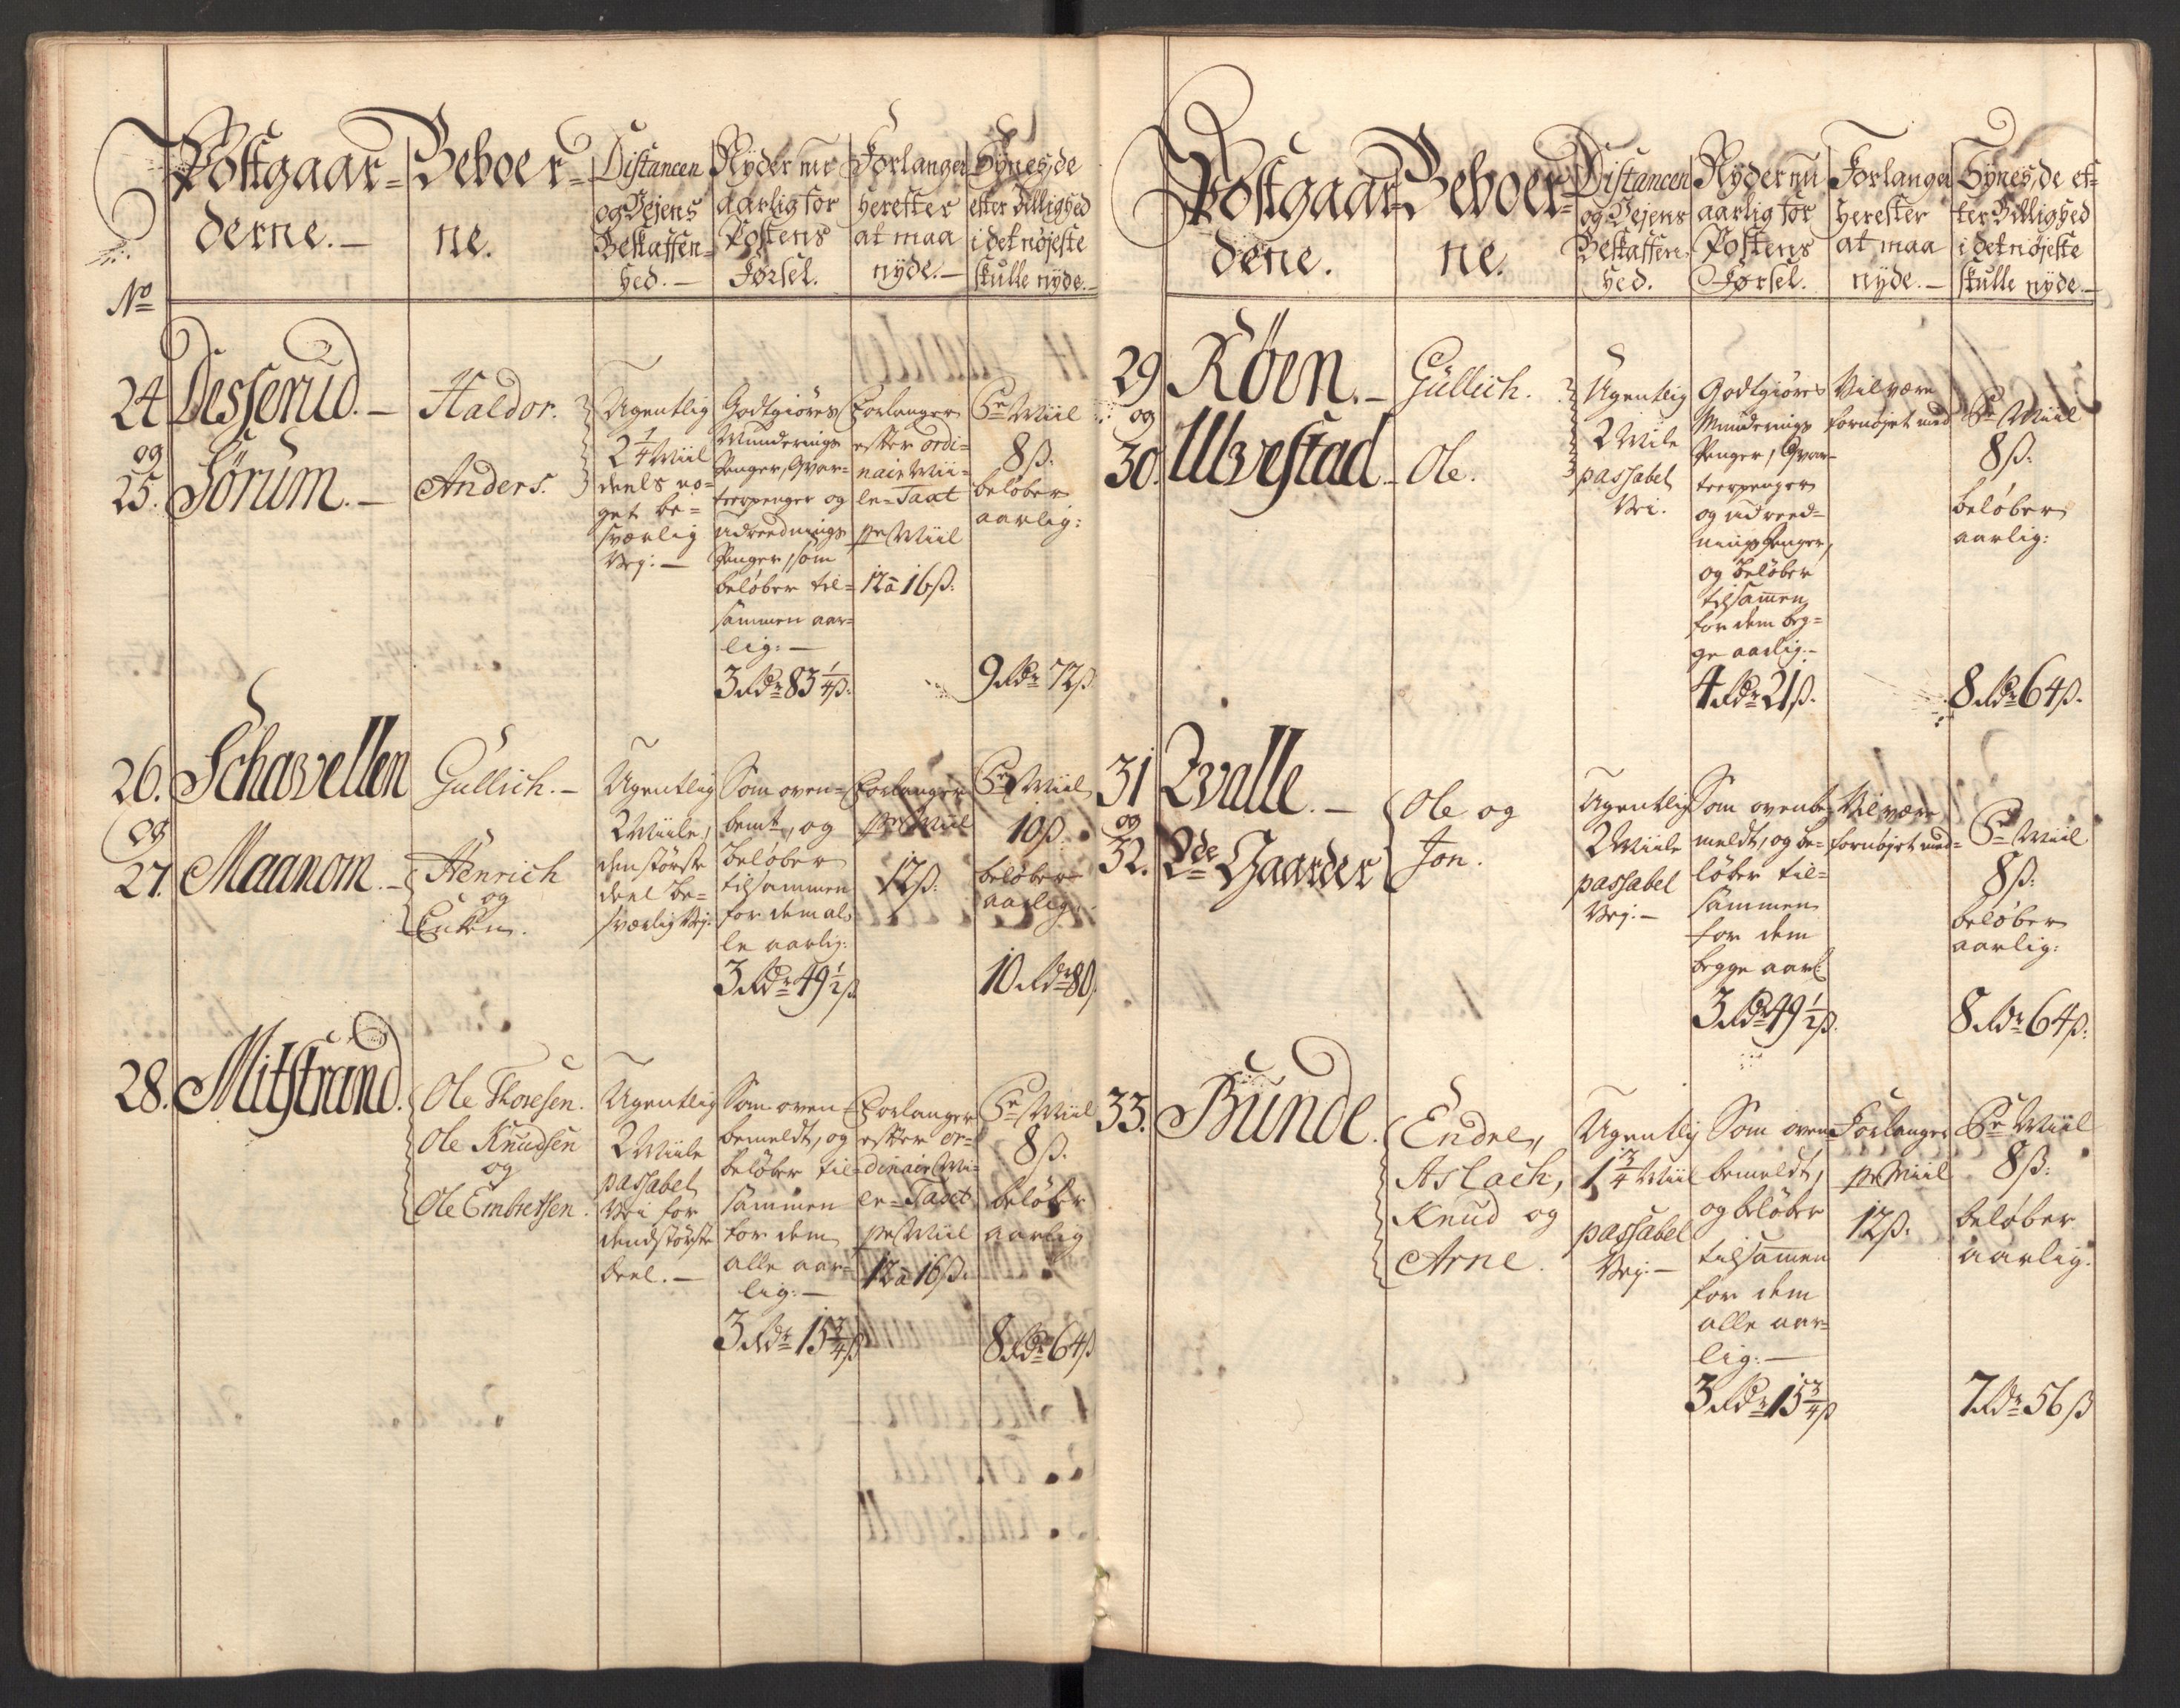 Postgaar=
derne.—
Beboer=
ne.
Distancen
og Vejens
Beskaffen=
hed.—
Nyder nu
aarlig for
Postens
Førsel.
Forlanger
herefter
at maa
nyde.—
Synes, de
efter Billighed
i det nøjeste
skulle nyde.—
No
24
og
25.
Desserud.—
Sørum.—
Haldor.
Anders.
Ugentlig
2 1/4 Miil
deels no=
get be=
sværlig
Vej:—
Godtgiøres
Munderings
Penger, Qvar=
teerpenger og
udreednings
Penger, som
beløber til=
sammen aar=
lig:—
3 Rdr 83 1/4 ß.
Forlanger
efter ordi=
nair Mii=
le=Taxt
pr Miil
12 à 16 ß.
Pr Miil
8 ß.
beløber
aarlig:
9 Rdr 72 ß.
26.
og
27.
Schavellen
Maanom.—
Gullich.—
Henrich
og
Enken.
Ugentlig
2 Miile,
den største
deel be=
sværlig Vej.
Som oven=
bemt, og
beløber
tilsammen
for dem al=
le aarlig:
3 Rdr 49 1/2 ß
Forlanger
pr Miil
12 ß.
Pr Miil
10 ß.
beløber
aarlig
10 Rdr 80.
28.
Mitstrand.
Ole Thoresen.
Ole Knudsen
og
Ole Embretsen.
Ugentlig
2 Miile
passabel
Vei for
dend største
deel.—
Som oven=
bemeldt, og
beløber til=
sammen
for dem
alle aar=
lig:—
3 Rdr 15 3/4 ß
Forlanger
efter or=
dinair Mi=
le=Taxt
pr Miil
12 à 16 ß.
Pr Miil
8 ß.
beløber
aarlig
8 Rdr 64 ß
Postgaar=
dene.
Beboer=
ne.
Distancen
og Vejens
Beskaffen=
hed.
Nyder nu
aarlig for
Postens
Førsel.
Forlanger
herefter
at maa
nyde.—
Synes, de ef=
ter Billighed
i det nøjeste
skulle nyde.—
29
og
30.
Røen.—
Ulvestad.—
Gullich.
Ole.
Ugentlig
2 Mile
passabel
Vei.
Godtgiøres
Munderings
Penger, Qvar=
teerpenger
og udreed=
nings Penger,
og beløber
tilsamen
for dem beg=
ge aarlig:—
4 Rdr 21 ß.
Vil være
fornøjet med
Pr Miil
8 ß.
beløber
aarlig:
8 Rdr 64 ß.
31
og
32.
Qvalle.—
2de Gaarder
Ole og
Jon.
Ugentlig
2 Miile
passabel
Vej:—
Som ovenbe=
meldt, og be=
løber til=
sammen
for dem
begge aarl:
3 Rdr 49 1/2 ß.
Vil være
fornøjet med=
Pr Miil
8 ß.
beløber
aarlig:
8 Rdr 64 ß.
33.
Bunde.
Endre,
Aslach,
Knud og
Arne.
Ugentlig
1 3/4 Miil
passabel
Vej:—
Som oven
bemeldt,
og beløber
tilsamen
for dem
alle aar=
lig:—
3 Rdr 15 3/4 ß
Forlanger
pr Miil
12 ß.
Pr Miil
8 ß.
beløber
aarlig.
7 Rdr 56 ß